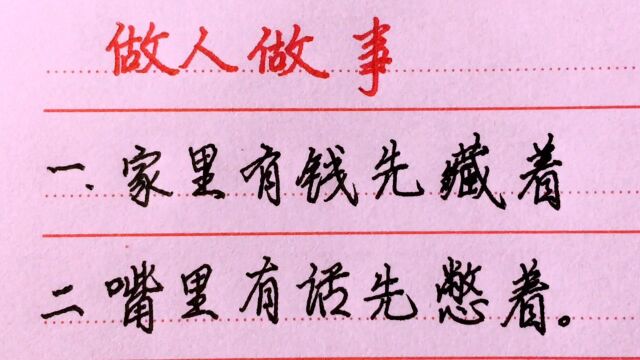 做人做事
一.家里有钱先藏着
二嘴里有话先憋着。